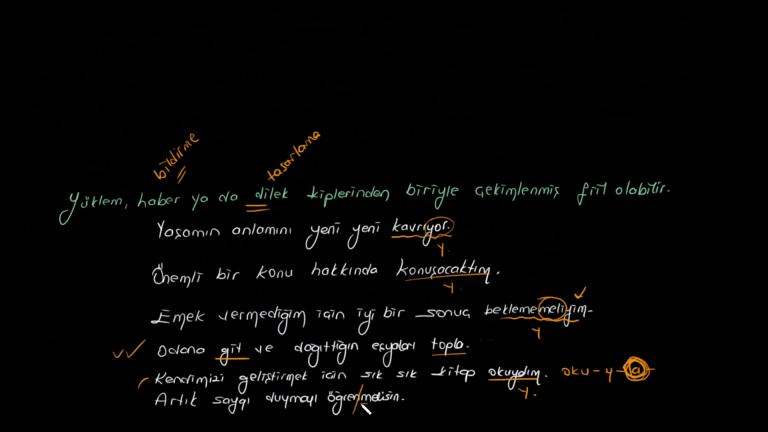 bildirme
tasarlama
Yüklem, haber ya da dilek kiplerinden biriyle çekimlenmiş fiil olabilir.
Yaşamın anlamını yeni yeni kavrıyor.
Y.
Önemli bir konu hakkında konuşacaktım.
Y.
Emek vermediğim için iyi bir sonuç beklememeliyim.
Y
Odana git ve dağıttığın eşyaları topla.
Kendimizi geliştirmek için sık sık kitap okuydım. oku-y-a-
Y.
Artık saygı duymayı öğrenmelisin.